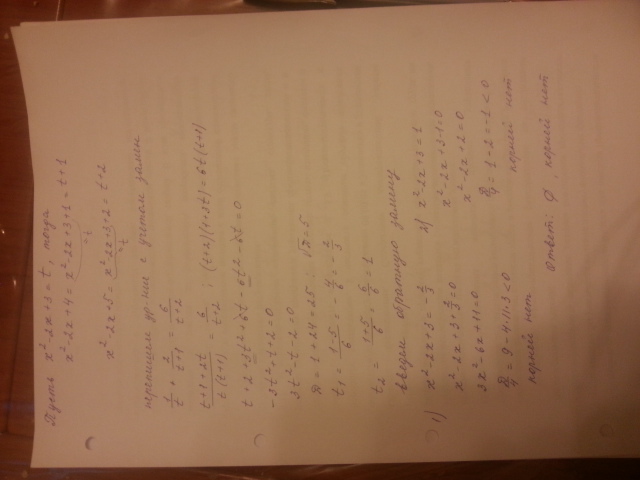 Пусть x²-2x+3=t, тогда
x²-2x+4=x²-2x+3+1=t+1
=t
x²-2x+5=x²-2x+3+2=t+2
=t
перепишем ур-ние с учетом замен
1/t + 2/(t+1) = 6/(t+2)
(t+1+2t)/(t(t+1)) = 6/(t+2) ; (t+2)(1+3t)=6t(t+1)
t+2+3t²+6t-6t²-6t=0
-3t²+t+2=0
3t²-t-2=0
D=1+24=25 ; √D=5
t₁=(1-5)/6=-4/6=-2/3
t₂=(1+5)/6=6/6=1
введем обратную замену
1) x²-2x+3=-2/3
x²-2x+3+2/3=0
3x²-6x+11=0
D/4=9-4·11·3<0
корней нет
2) x²-2x+3=1
x²-2x+3-1=0
x²-2x+2=0
D/4=1-2=-1<0
корней нет
Ответ: ∅, корней нет